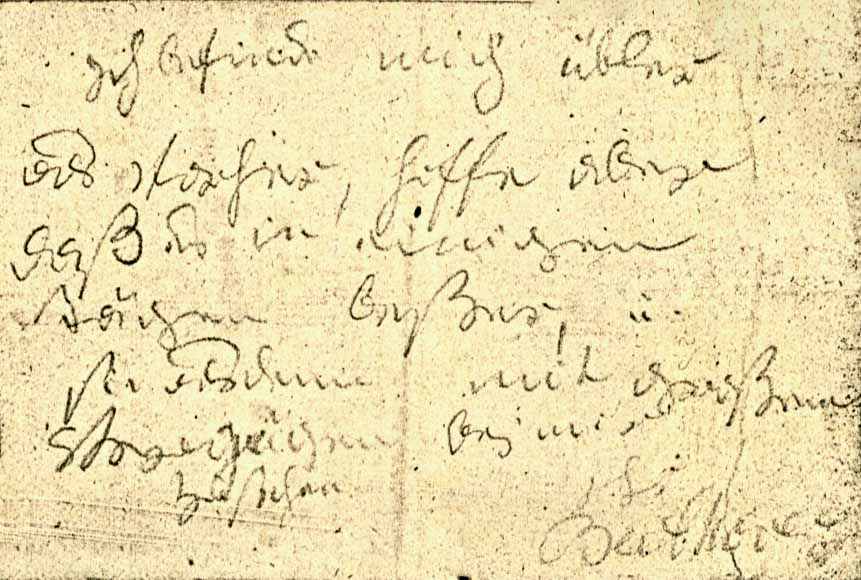 ich befinde mich übler
als vorher, hoffe aber
daß es in einigen
Tägen beßer, u.
sie alsdenn mit großem
Vergnügen bey mir
zu sehen
Beethoven